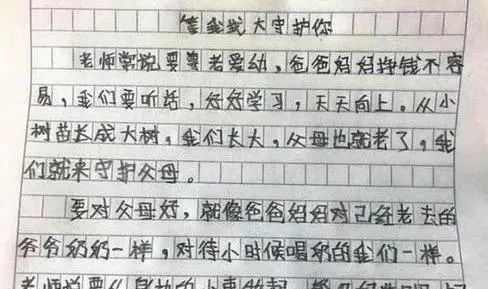 等我长大守护你
老师常说要尊老爱幼，爸爸妈妈挣钱不容
易，我们要听话，好好学习，天天向上。从小
树苗长成大树，我们长大，父母也就老了，我
们就来守护父母。
要对父母好，就像爸爸妈妈对已经老去的
爷爷奶奶一样，对待小时候喝奶的我们一样。
老师说要从身边的小事做起